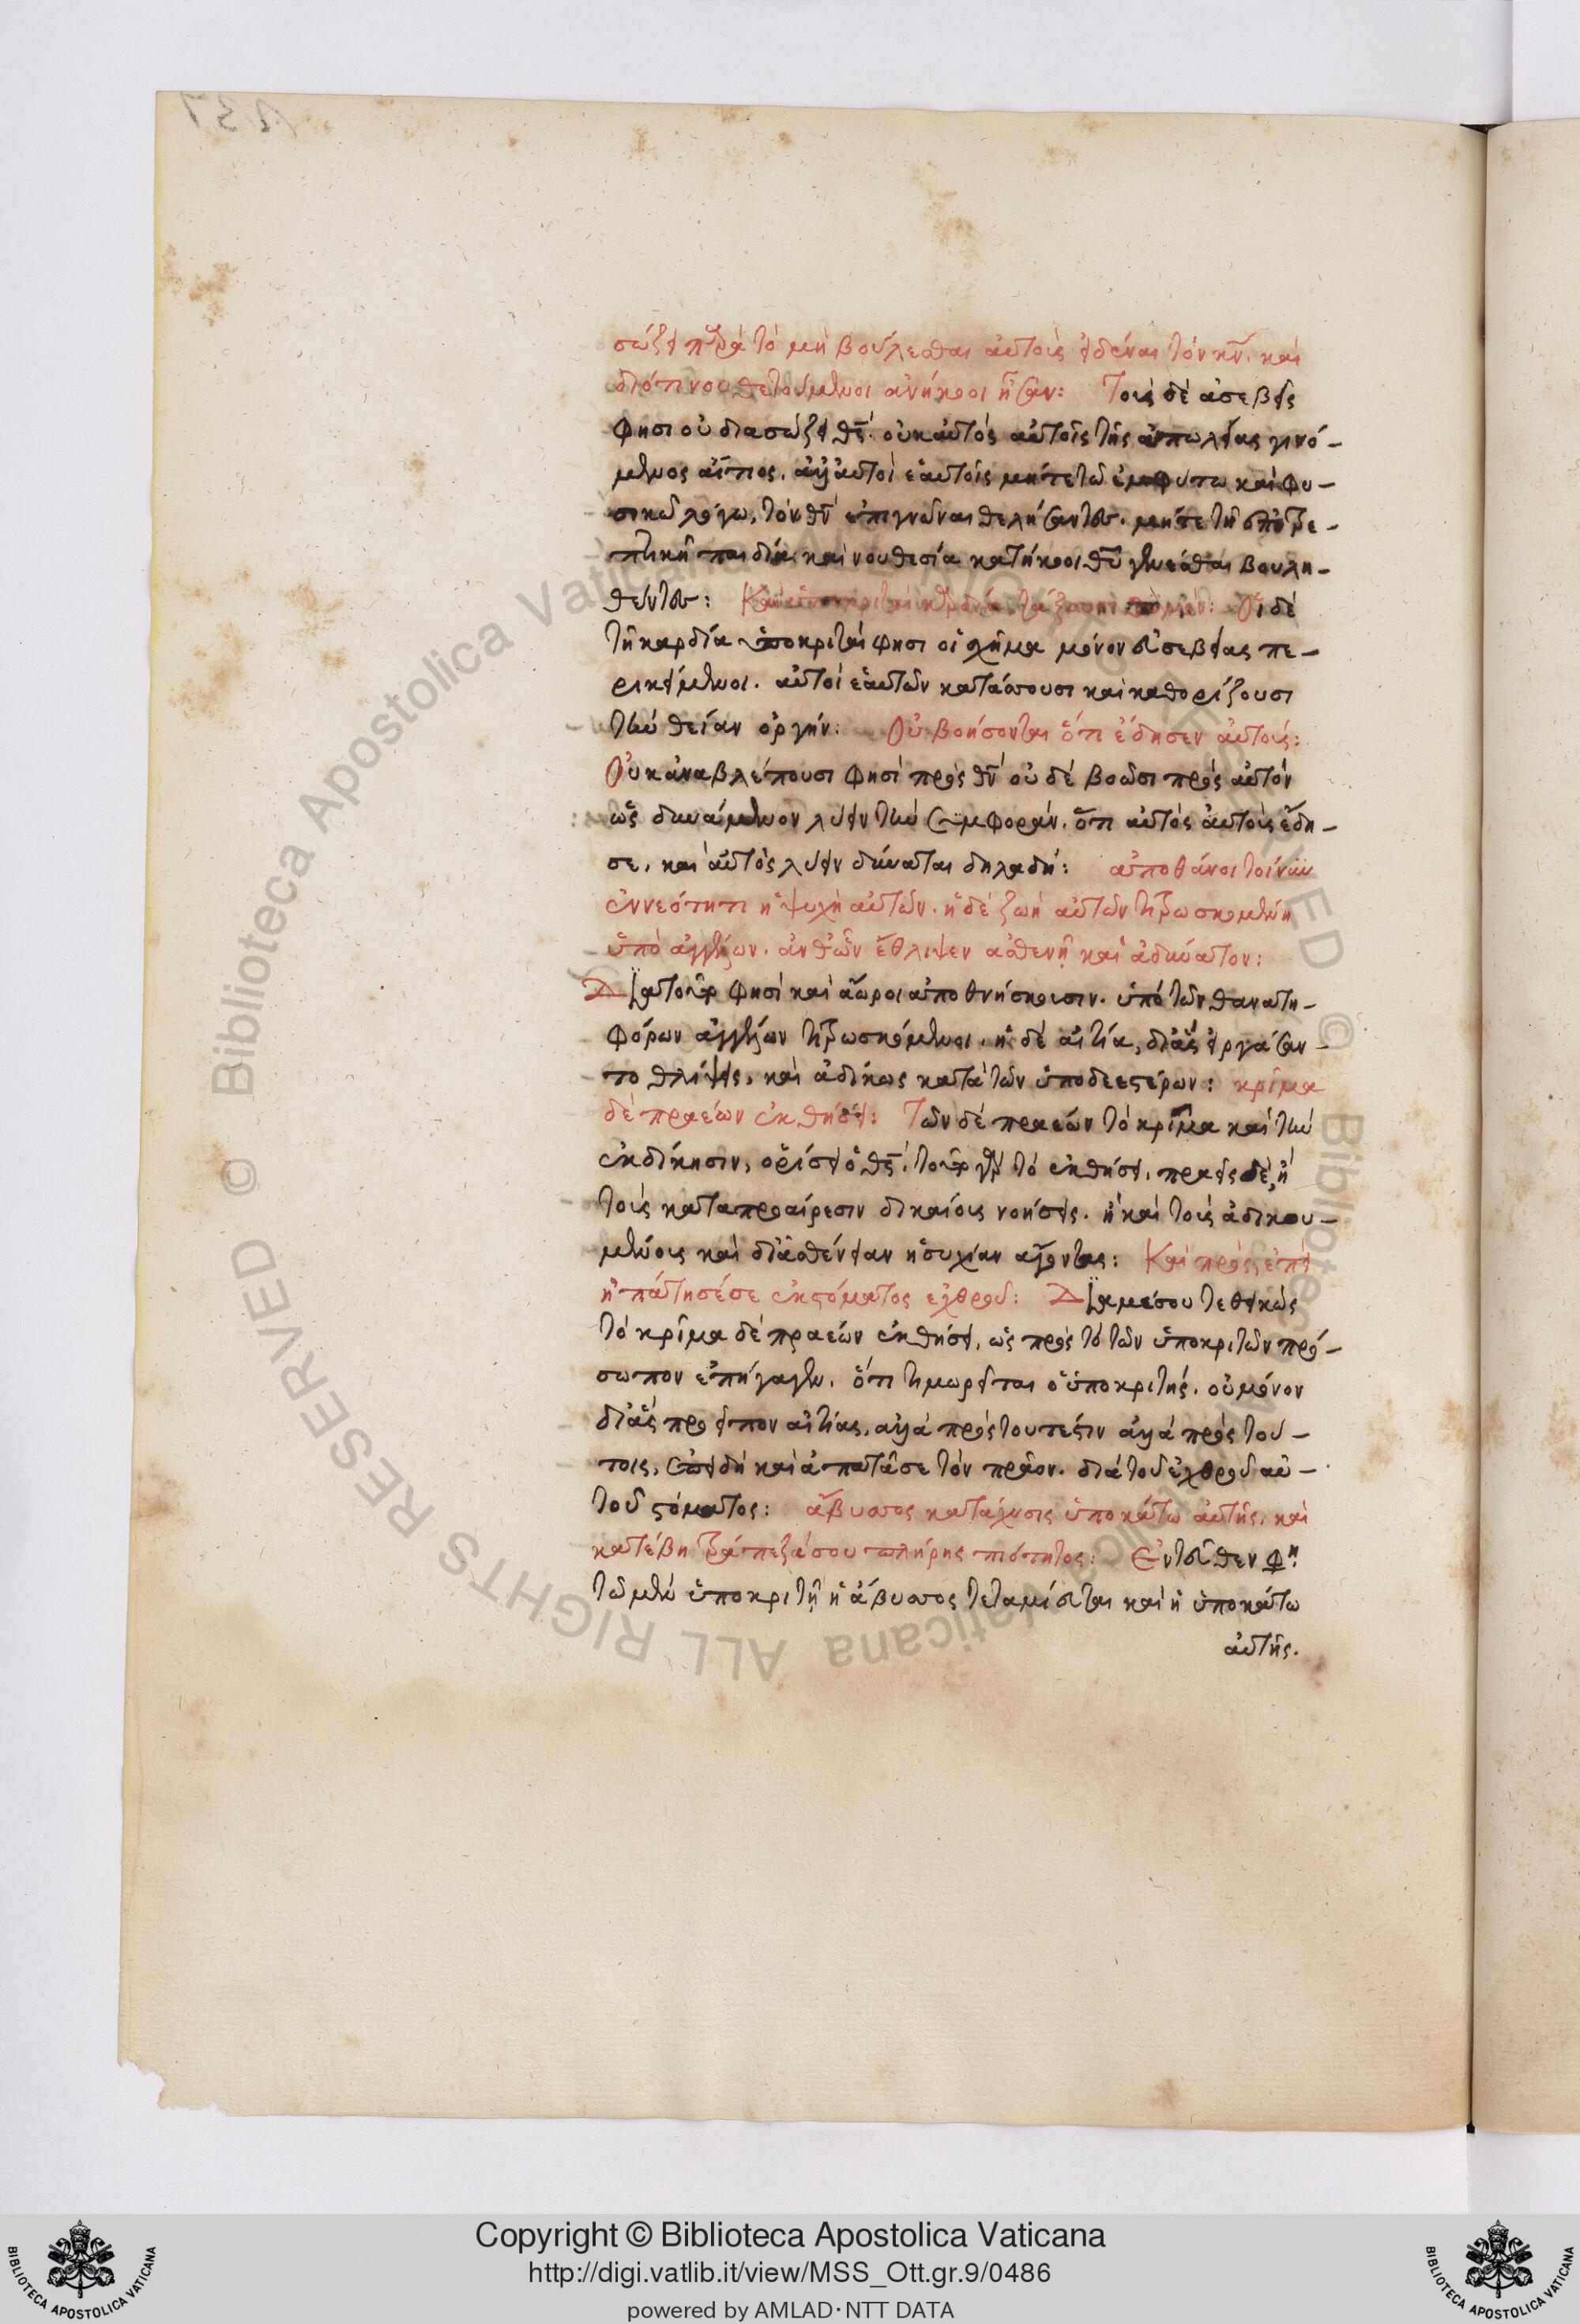 σώζει παρὰ τὸ μὴ βούλεσθαι αὐτοὺς εἰδέναι τὸν κν̅. καὶ
διότι νουθετούμενοι ἀνήκοοι ἦσαν: Τοὺς δὲ ἀσεβεῖς
φησι οὐ διασώζει θς̅. οὐκ αὐτὸς αὐτοῖς τῆς ἀπωλείας γινό-
μενος αἴτιος. ἀλλ' αὐτοὶ ἑαυτοῖς μήτε τῶ ἐμφύτω καὶ φυ-
σικῶ λόγω, τὸν θν̅ ἐπιγνῶναι θελήσαντες. μήτε τῆ
πτικῆ παιδεία καὶ νουθεσία κατήκοοι θυ̅ γενέσθαι βουλη-
θέντες: Καὶ ὑποκριταὶ καρδία τάξουσι θυμὸν: Οἱ δὲ
τῆ καρδία ὑποκριταὶ φησι οἱ σχῆμα μόνον εὐσεβείας πε-
ρικείμενοι. αὐτοὶ ἑαυτῶν κατάσσουσι καὶ καθορίζουσι
τὴν θείαν ὀργήν: Οὐ βοήσονται ὅτι ἔδησεν αὐτούς:
Οὐκ ἀναβλέπουσι φησὶ πρὸς θν̅ οὐδὲ βοῶσι πρὸς αὐτόν
ὡς δυνάμενον λύειν τὴν συμφοράν. ὅτι αὐτὸς αὐτοὺς ἔδη-
σε, καὶ αὐτὸς λύειν δύναται δηλαδή: ἀποθάνοι τοίνυν
ἐν νεότητι ἡ ψυχὴ αὐτῶν. ἡ δὲ ζωὴ αὐτῶν τιτρωσκομένη
ὑπὸ ἀγγέλων. ἀνθ' ὧν ἔθλιψεν ἀσθενῆ καὶ ἀδύνατον:
Διατοῦτο φησὶ καὶ ἄωροι ἀποθνήσκουσιν. ὑπὸ τῶν θανατη-
φόρων ἀγγέλων τιτρωσκόμενοι. ἡ δὲ αἰτία, δι' ἃς εἰργάσαν-
το θλίψεις, καὶ ἀδίκως κατὰ τῶν ὑποδεεστέρων: κρίμα
δὲ πραέων ἐκθήσει: Τῶν δὲ πραέων τὸ κρῖμα καὶ τὴν
ἐκδίκησιν, ὁρίσει ὁ θς̅. τοῦτο γὰρ τὸ ἐκθήσει. πραεῖς δὲ, ἢ
τοὺς κατὰ προαίρεσιν δικαίους νοήσεις. ἢ καὶ τοὺς ἀδικου-
μένους καὶ δι' ἀσθένειαν ἡσυχίαν ἄγοντας: Καὶ πρὸς, ἐπεὶ
ἠπάτησέ σε ἐκ στόματος ἐχθροῦ: Διαμέσου τεθεικὼς
τὸ κρῖμα δὲ πραέων ἐκθήσει, ὡς πρὸς τὸ τῶν ὑποκριτῶν πρό-
σωπον ἐπήγαγεν. ὅτι τιμωρεῖται ὁ ὑποκριτής. οὐ μόνον
δι' ἃς προεῖπον αἰτίας, ἀλλὰ πρὸς τουτέστιν ἀλλὰ πρὸς τού-
τοις, ἐπειδὴ καὶ ἀπατᾶσε τὸν πρᾶον. διὰ τοῦ ἐχθροῦ αὐ-
τοῦ στόματος: ἄβυσσος κατάχυσις ὑποκάτω αὐτῆς. καὶ
κατέβη τράπεζά σου πλήρης πιότητος: Ἐντεῦθεν φη.
τῶ μὲν ὑποκριτῆ ἡ ἄβυσσος τεταμίευται καὶ ἡ ὑποκάτω
αὐτῆς.
Copyright © Biblioteca Apostolica Vaticana
http://digi.vatlib.it/view/MSS_Ott.gr.9/0486
powered by AMLAD·NTT DATA
BIBLIOTECA APOSTOLICA VATICANA
BIBLIOTECA APOSTOLICA VATICANA
© Biblioteca Apostolica Vaticana ALL RIGHTS RESERVED
© Biblioteca Apostolica Vaticana ALL RIGHTS RESERVED